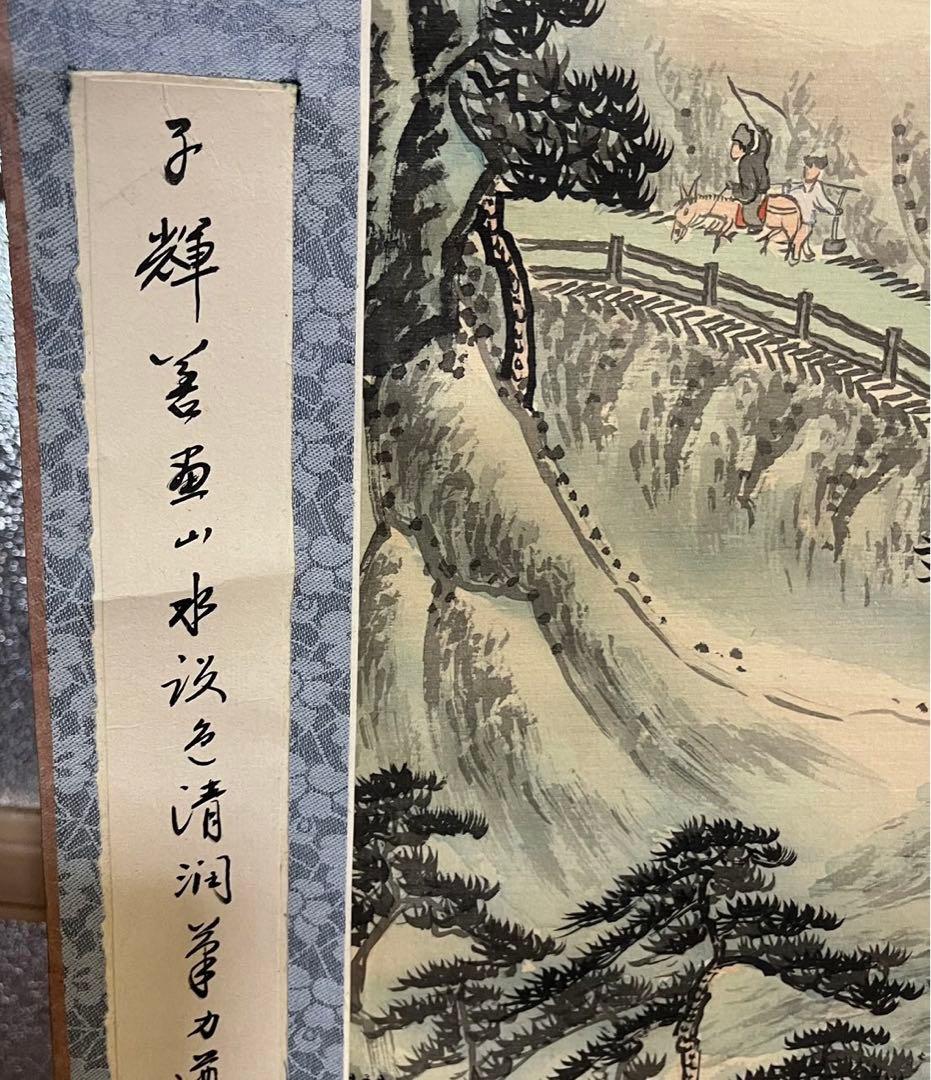 子輝善畫山水设色清润笔力